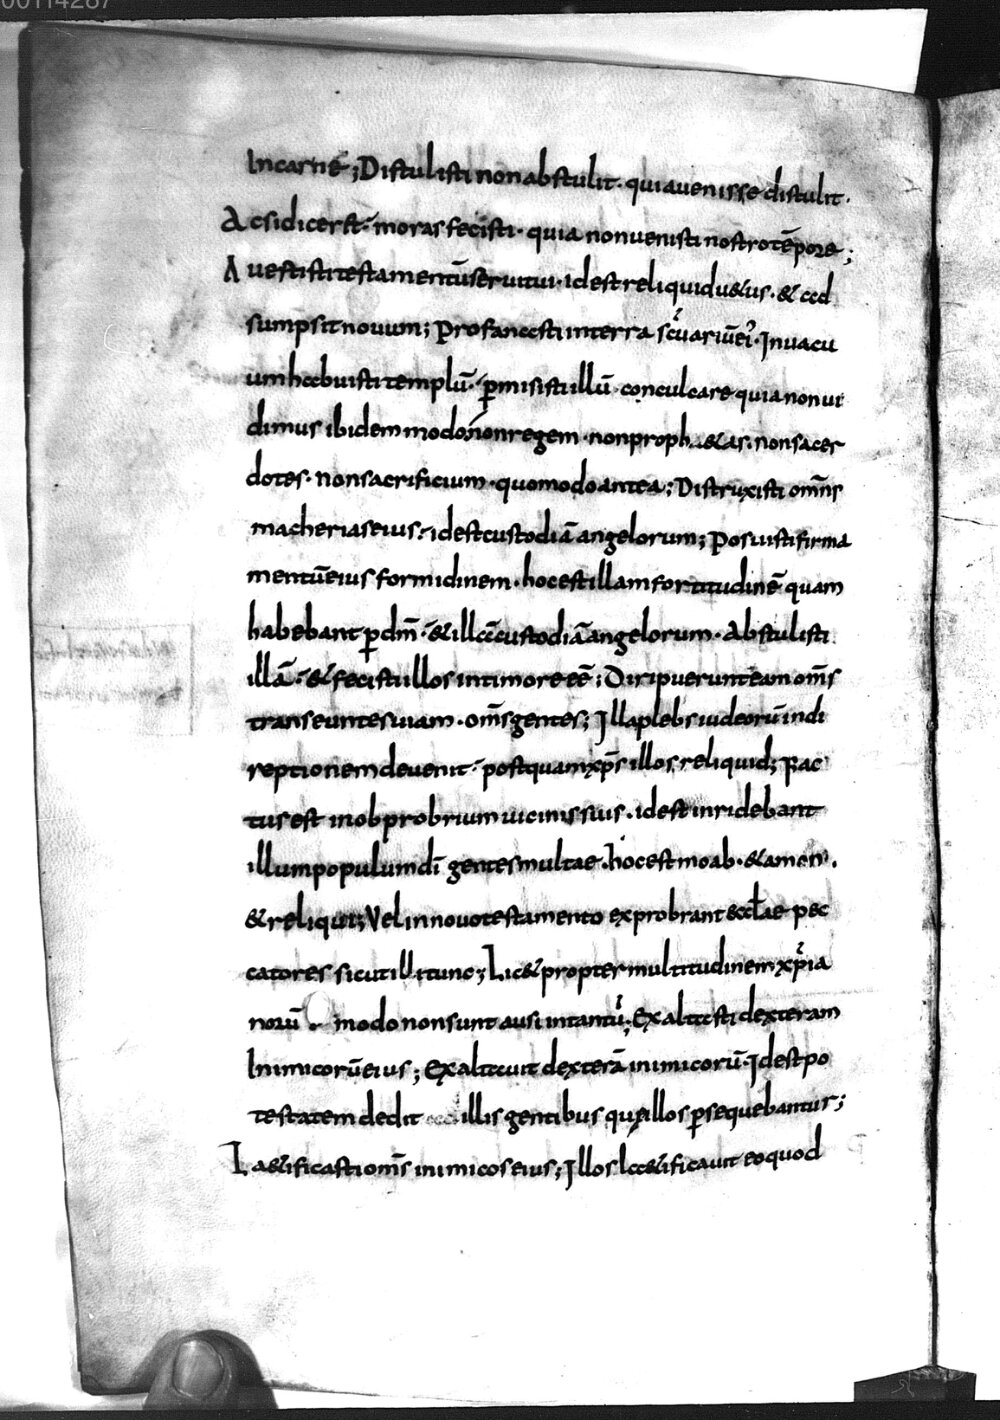 00114287
In carnē; Distulisti non abstulit · qui a venisse distulit ·
Ac si diceret · moras fecisti · quia non venisti nostro tēpore ;
Avertisti testamentū servi tui · id est reliquid vetus · & ad
sumpsit novum ; Profanasti in terra scuariū ei · In vacu
um habuisti templū · pmisisti illū conculcare quia non vi
dimus ibidem modo non regem · non proph&as · non sacer
dotes · non sacrificium · quomodo antea ; Distruxisti omns
macherias eius · id est custodiā angelorum ; Posuisti firma
mentū eius formidinem · hoc est illam fortitudinē quam
habebant p dm̄ · & illā custodiā angelorum · Abstulisti
illā · & fecisti illos in timore eē ; Diripuerunt eam om̄s
transeuntes viam · om̄s gentes ; Illa plebs iudeorū in di
reptionem devenit · postquam xp̄s illos reliquid ; Fac
tus est in obprobrium vicinis suis · id est inridebant
illum populum dī gentes multae · hoc est moab · & amon ·
& reliqui ; Vel in novo testamento exprobrant eccłae pec
catores sicut illi tunc ; Lic& propter multitudinem xpia
norū modo non sunt ausi in tantū ; Exaltasti dexteram
Inimicorū eius ; Exaltavit dexterā inimicorū · Id est po
testatem dedit illis gentibus qui illos psequebantur ;
La&ificasti om̄s inimicos eius ; Illos la&ificavit eo quod